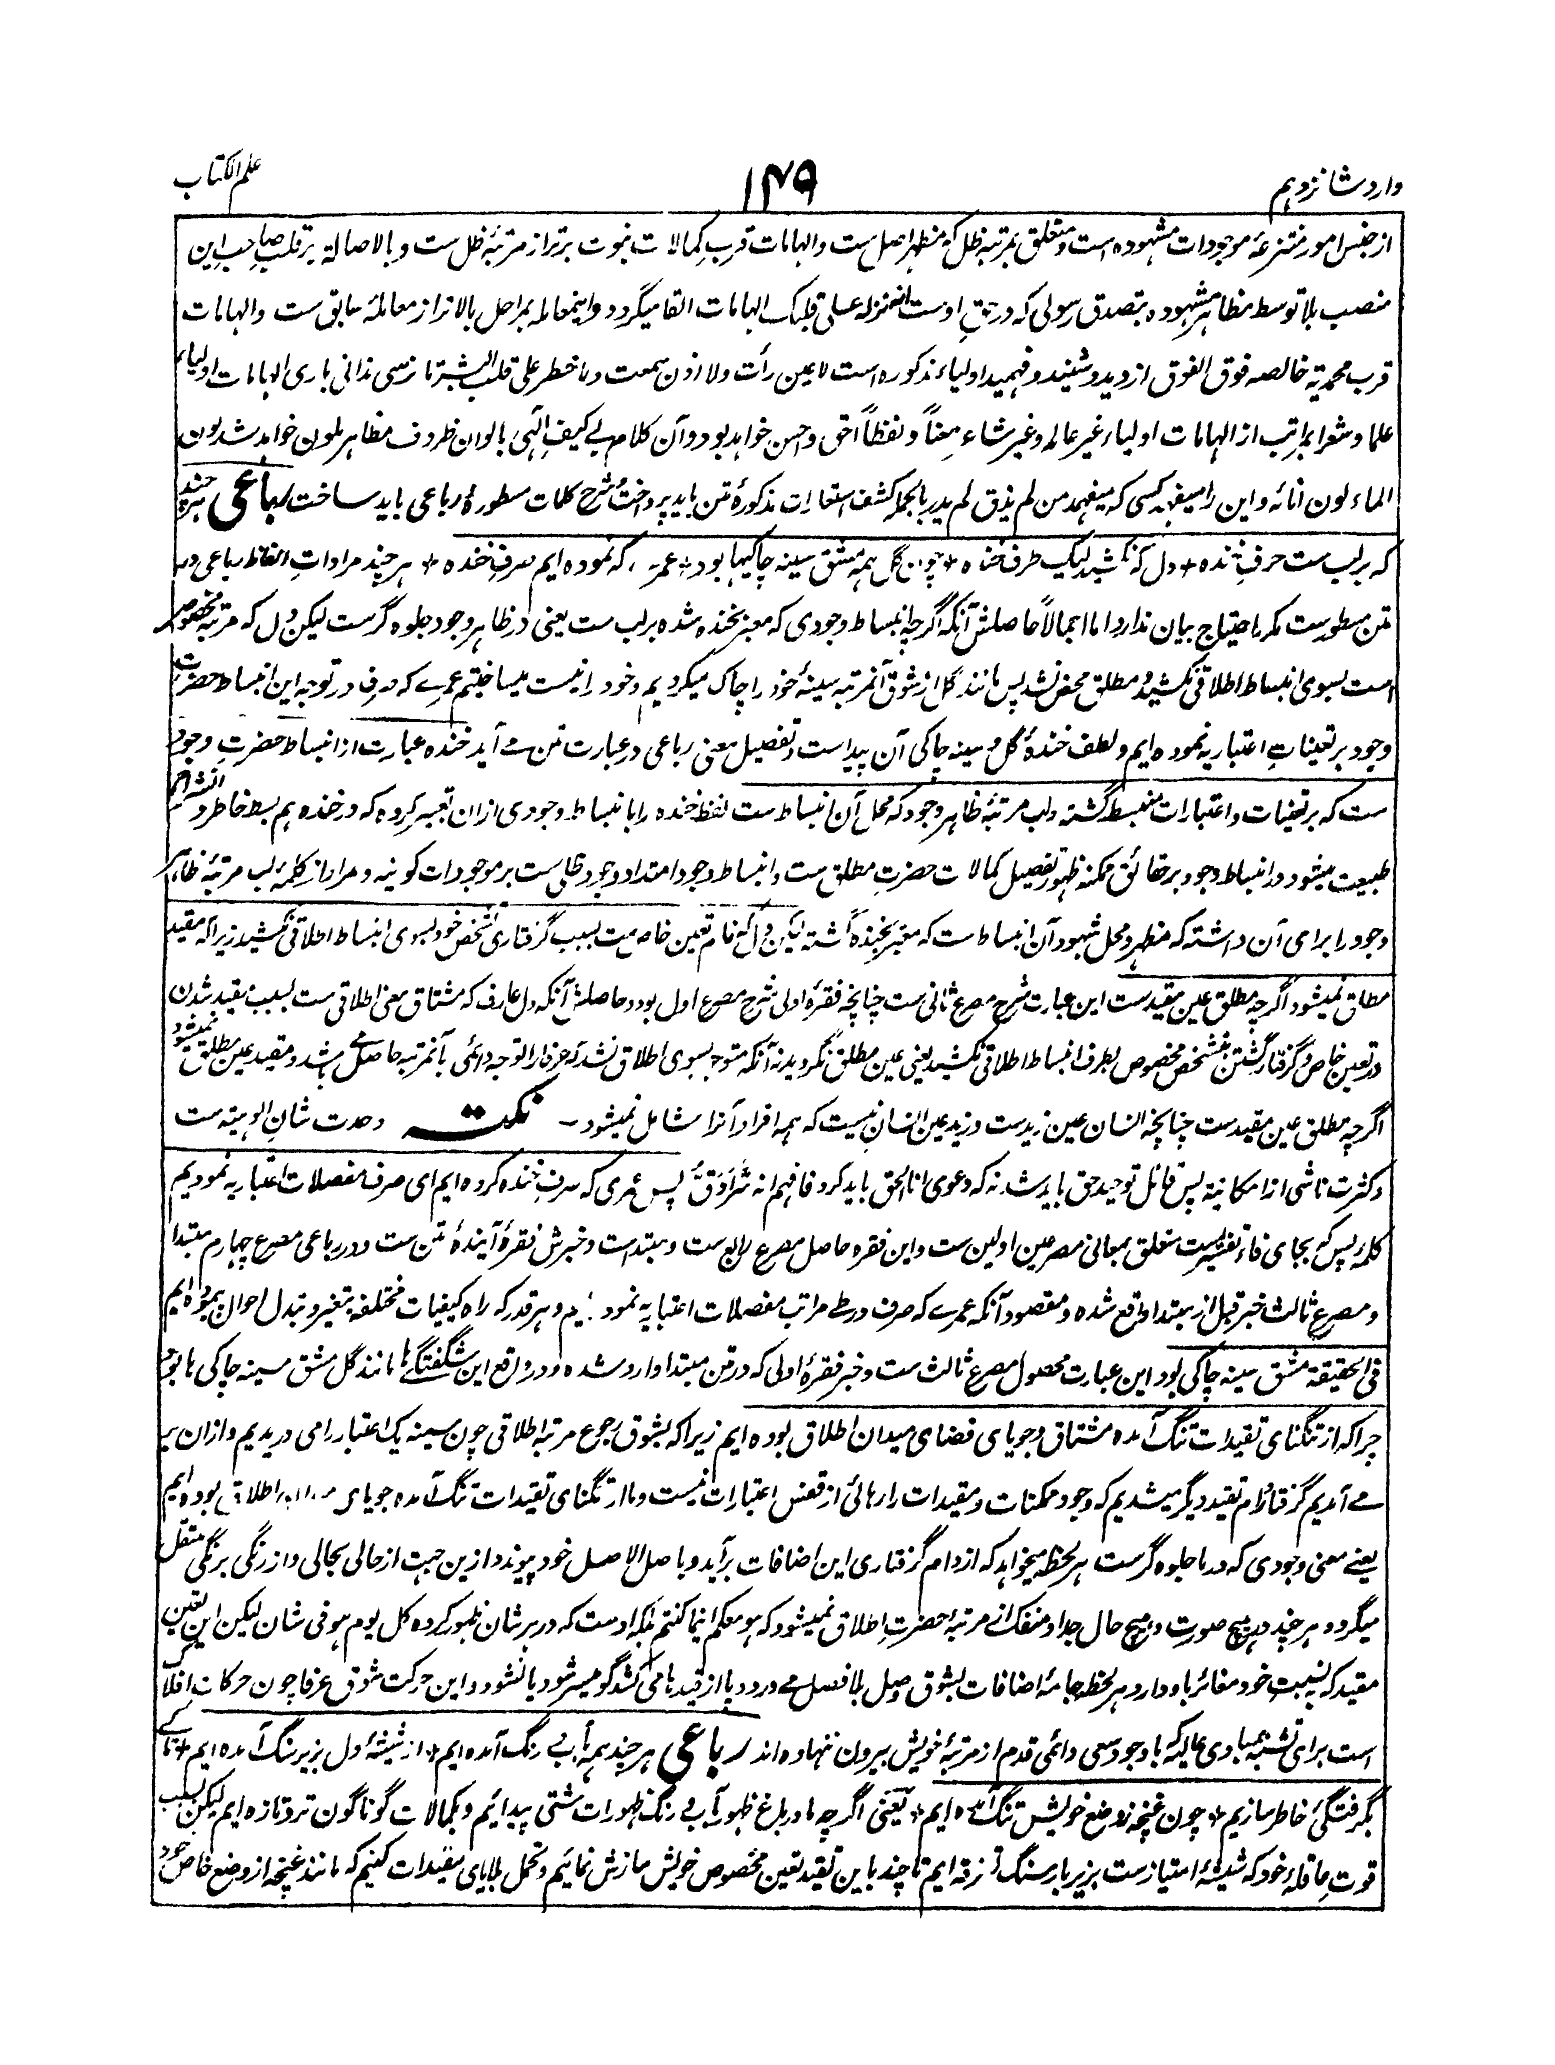 وارد شانزدهم
۱۴۹
علم الکتاب
از جنس امور منتزعهٔ موجودات مشهوده است و متعلق بمرتبه ظل که مظهر اصل ست و الهامات قرب کمالات نبوت برتر از مرتبهٔ ظل ست و بالاصالة بر قلب صاحب این
منصب بلا توسط مظاهر مشهوده بتصدق رسولی که در حق اوست انه نزله علی قلبک الهامات القا میگردد و اینمعامله بمراحل بالاتر از معاملهٔ سابق ست و الهامات
قرب محمدیه خالصه فوق الفوق از دید و شنید و فهمید اولیاء مذکوره است لا عین رأت ولا اذن سمعت وما خطر علی قلب البشر تا نرسی ندانی باری الهامات اولیاء
علما و شعرا بمراتب از الهامات اولیاء غیر عالم و غیر شاعر معناً و لفظاً احق و احسن خواهد بود و آن کلام بے کیف الٓهی بالوان ظروف مظاهر ملون خواهد شد لون
الماء لون انائه و این را میفهمد کسی که میفهمد من لم یذق لم یدر بالجمله کشف استعارات مذکورهٔ متن باید پرداخت و شرح کلمات مسطورهٔ رباعی باید ساخت رباعی هر چند
که بر لب ست حرف خنده + دل که نکشید لیک طرف خنده + چون گل همه مشق سینه چاکیها بود + عمرے که نموده ایم صرف خنده + هر چند مرادات الفاظ رباعی در
متن مسطورست مگر باحتیاج بیان ندارد اما اجمالاً حاصلش آنکه اگرچه انبساط وجودی که معبر بخنده شده بر لب ست یعنی در ظاهر وجود جلوه گرست لیکن دل که مرتبه مخصوص
است بسوی انبساط اطلاقی نکشید و مطلق محض نشد پس مانند گل از شوق آنمرتبه سینهٔ خود را چاک میکردیم و خود را نیست میساختیم عمرے که صرف در توجه این انبساط حضرت
وجود بر تعینات اعتباریه نموده ایم و لطف خندهٔ گل و سینه چاکی آن پیداست و تفصیل معنی رباعی در عبارت متن مے آید خنده عبارت از انبساط حضرت وجود
ست که بر تعینات و اعتبارات منبسط گشته و لب مرتبهٔ ظاهر وجود که محل آن انبساط ست لفظ خنده را با انبساط وجودی ازان تعبیر کرده که در خنده هم بسط خاطر و انشراح
طبیعت میشود و در انبساط وجود بر حقائق ممکنه ظهور تفصیل کمالات حضرت مطلق ست و انبساط وجود امتداد وجود ظلی ست بر موجودات کونیه و مراد از کلمهٔ لب مرتبهٔ ظاهر
وجود را برای آن داشته که مظهر و محل شهود آن انبساط ست که معبر بخنده گشته لیکن دل که نام تعین خاص ست بسبب گرفتاری تشخص خود بسوی انبساط اطلاقی نکشید زیرا که مقید
مطلق نمیشود اگرچه مطلق عین مقید ست این عبارت شرح مصرع ثانی ست چنانچه فقرهٔ اولی شرح مصرع اول بود و حاصلش آنکه دل عارف که مشتاق معنی اطلاقی ست بسبب مقید شدن
در تعین خاص و گرفتار گشتن بتشخص مخصوص بطرف انبساط اطلاقی نکشید یعنی عین مطلق نگردید نه آنکه متوجه بسوی اطلاق نشد که عرفا را توجه دائمی بآنمرتبه حاصل مے باشد و مقید عین مطلق نمیشود
اگرچه مطلق عین مقید ست چنانچه انسان عین زیدست و زید عین انسان نیست که همه افراد آنرا شامل نمیشود ـ نکته وحدت شان الوهیة ست
و کثرت ناشی از امکانیة پس قائل توحید حق باید شد نه که دعوی انا الحق باید کرد فافهم انه سر ادق پس عمری که صرف خنده کرده ایم ای صرف مفصلات اعتباریه نمودیم
کلمه پس که بجای فاء تفسیرست متعلق بمعانی مصرعین اولین ست و این فقره حاصل مصرع رابع ست و مبتداست و خبرش فقرهٔ آیندهٔ متن ست و در رباعی مصرع چهارم مبتدا
و مصرع ثالث خبر قبل از مبتدا واقع شده و مقصود آنکه عمرے که صرف در طے مراتب مفصلات اعتباریه نموده ایم و هر قدر که راه کیفیات مختلفه بتغیر و تبدل احوال پیموده ایم
فی الحقیقة مشق سینه چاکی بود این عبارت محصول مصرع ثالث ست و خبر فقرهٔ اولی که در متن مبتدا وارد شده و در واقع این شگفتگی ها مانند گل مشق سینه چاکی ها بود
چرا که از تنگنای تقیدات تنگ آمده مشتاق و جویای فضای میدان اطلاق بوده ایم زیرا که بشوق رجوع مرتبه اطلاقی چون سینه یک اعتبار را می دریدیم و ازان بر
مے آمدیم گرفتار دام تقید دیگر میشدیم که وجود ممکنات و مقیدات را رهائی از قفس اعتبارات نیست و ما از تنگنای تقیدات تنگ آمده جویای اطلاق بوده ایم
یعنے معنی وجودی که در ما جلوه گرست هر لحظه میخواهد که از دام گرفتاری این اضافات برآید و باصل الاصل خود پیوندد ازین جهت از حالی بحالی و از رنگی برنگی منتقل
میگردد و هر چند در هیچ صورت و هیچ حال جدا و منفک از مرتبهٔ حضرت اطلاق نمیشود که هو معکم اینما کنتم بلکه اوست که در هر شان ظهور کرده کل یوم هو فی شان لیکن این تعین
مقید که به نسبت خود مغائر با او دارد هر لحظه جامهٔ اضافات بشوق وصل بلا فصل مے درد و پا از قید ها می کشد گو میسر شود یا نشود و این حرکت شوق عرفا چون حرکات افلاک
است برای تشبه بمبادی عالیه که با وجود سعی دائمی قدم از مرتبهٔ خویش بیرون ننهاده اند رباعی هر چند همه آب بے رنگ آمده ایم + از شیشهٔ دل بزیر سنگ آمده ایم + تا کے
بگرفتگی خاطر سازیم + چون غنچه ز وضع خویش تنگ آمده ایم + یعنی اگرچه ما در باغ ظهور آب بی رنگ ظهورات شتی پیدائیم و بکمالات گوناگون تر و تازه ایم لیکن بسبب
قوت عاقلهٔ خود که شیشهٔ امتیازست بزیر بار سنگ تفرقه ایم تا چند باین تقید تعین مخصوص خویش سازش نمائیم و تحمل بلایای مقیدات کنیم که مانند غنچه از وضع خاص خود